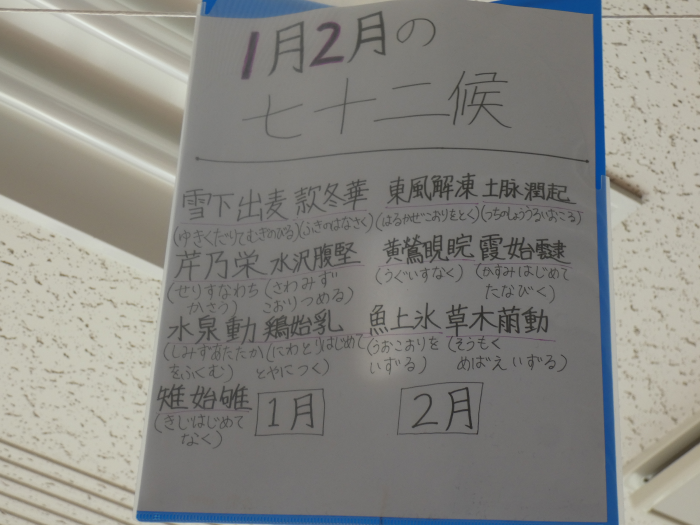 1月2月の
七十二候
雪下出麦 款冬華 東風解凍 土脉潤起
(ゆきくだりてむぎのびる)(ふきのはなさく)(はるかぜこおりをとく)(つちのしょううるいおこる)
芹乃栄 水沢腹堅 黄鶯睍睆 霞始靆
(せりすなわち (さわみず (うぐいすなく) (かすみはじめて
さかう) こおりつめる) たなびく)
水泉動 鶏始乳 魚上氷 草木萠動
(しみずあたたか (にわとりはじめて (うおこおりを (そうもく
をふくむ) とやにつく) いずる) めばえいずる)
雉始雊 1月 2月
(きじはじめて
なく)